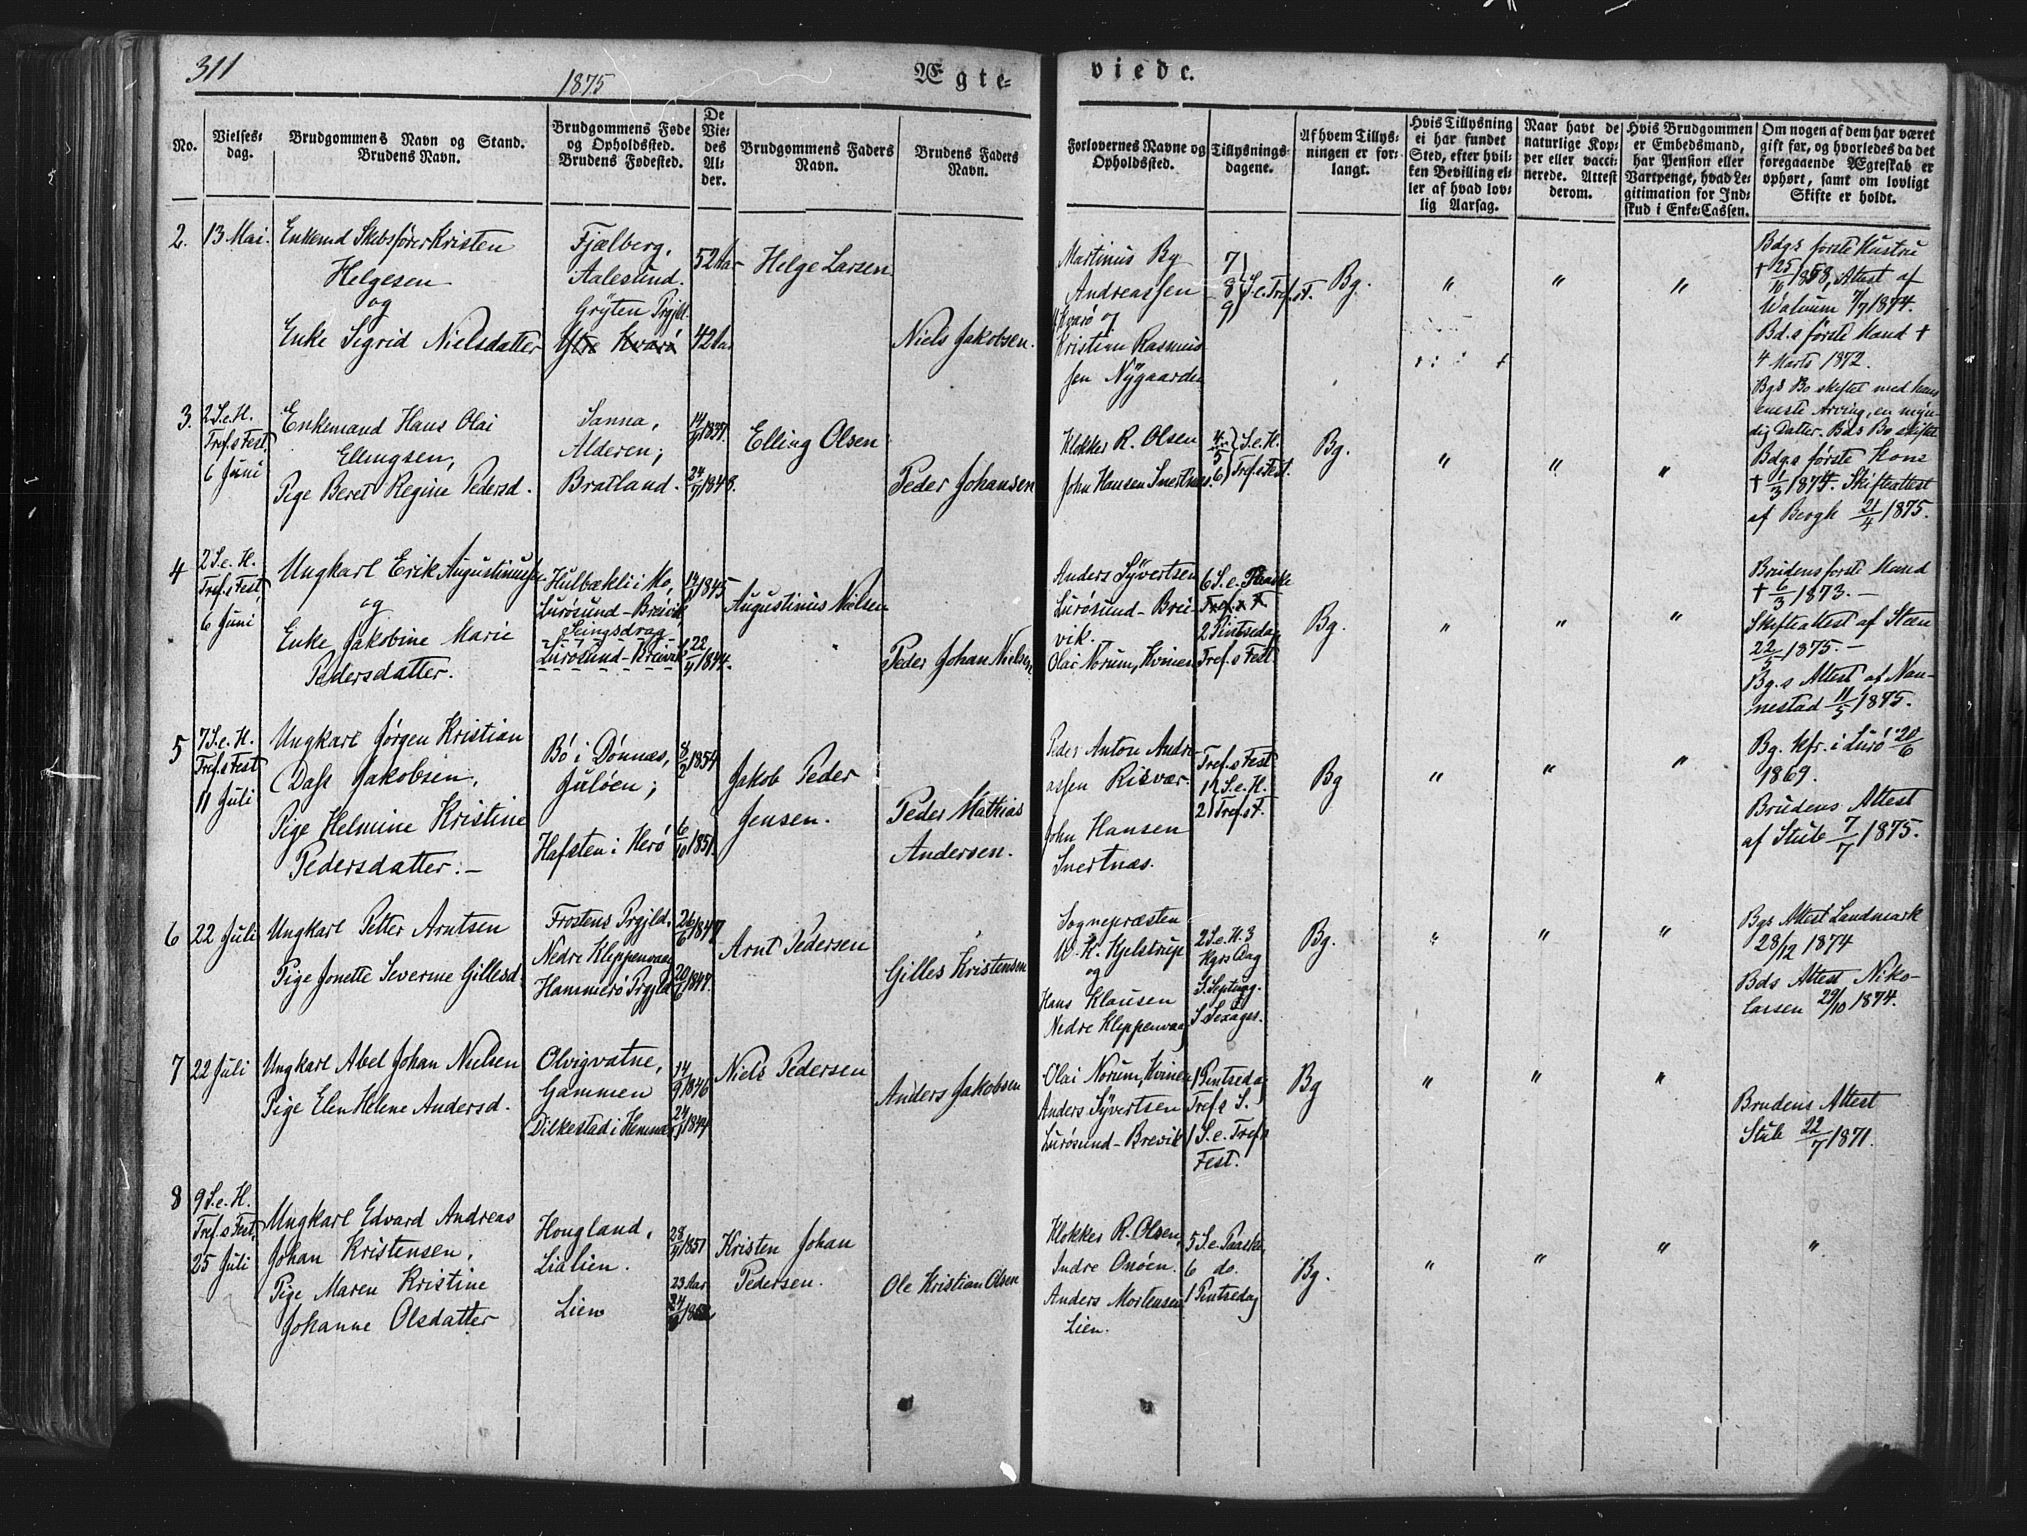 311
1875
Ægte-
viede.
No.
Vielses-
dag.
Brudgommens Navn og Stand.
Brudens Navn.
Brudgommens Føde
og Opholdssted.
Brudens Fødested.
De
Vie-
des
Al-
der.
Brudgommens Faders
Navn.
Brudens Faders
Navn.
Forlovernes Navne og
Opholdssted.
Tillysnings-
dagene.
Af hvem Tillys-
ningen er for-
langt.
Hvis Tillysning
ei har fundet
Sted, efter hvil-
ken Bevilling el-
ler af hvad lov-
lig Aarsag.
Naar havt de
naturlige Kop-
per eller vacci-
nerede. Attest
derom.
Hvis Brudgommen
er Embedsmand,
har Pension eller
Vartpenge, hvad Le-
gitimation for Ind-
skud i Enke-Cassen.
Om nogen af dem har været
gift før, og hvorledes da det
foregaaende Ægteskab er
ophørt, samt om lovligt
Skifte er holdt.
2.
13 Mai.
Enkemd Skibsfører Kristen
Helgesen
og
Enke Sigrid Nielsdatter
Fjælberg,
Aalesund.
Gryten Prgjld.
Kvarö
52 Aar
42 Aar
Helge Larsen
Niels Jakobsen.
Martinus By
Andreassen
Kvarö og
Kristian Rasmus
sen Nygaarden
7
8 S. e. Tref.s F.
9
Bg.
"
"
"
Bdgs første Hustru
+ 25/11 1858, Attest af
Walnum 7/7 1874.
Bd.s første Mand +
4 Marts 1872.
Bgs Bo skiftet med hans
eneste Arving, en myn-
dig Datter. Bds Bo skiftet
3.
2 S. e. H.
Tref.s Fest,
6 Juni
Enkemand Hans Olai
Ellingsen,
Pige Beret Regine Pedersd.
Sanna,
Alderen;
Bratland.
1837.
1848.
Elling Olsen
Peder Johansen
Klokker R. Olsen
John Hansen Snertnæs.
4
5 S. e. H.
6 Tref.s Fest.
Bg.
"
"
"
Bdgs første Kone
+ 6/3 1875. Skifteattest
af Bergh 21/4 1875.
4
2 S. e. H.
Tref.s Fest,
6 Juni
Ungkarl Erik Augustinussen
og
Enke Jakobine Marie
Pedersdatter.
Hulbækli i Mo,
Lurösund - Breivik
Seingsdrag
Lurösund - Breivik
1845
22 1844.
Augustinus Nielsen
Peder Johan Nielsen
Anders Syvertsen
Lurösund - Brei-
vik.
Olai Norum, Kvinen
6 S. e. Paaske
Tref.s F.
2 Pintsedag
Tref.s Fest.
Bg.
"
"
"
Brudens første Mand
+ 6/3 1873. -
Skifteattest af Steen
22/5 1875. -
Bg.s Attest af Nan-
nestad 11/5 1875.
5
7 S. e. H.
Tref.s Fest
11 Juli
Ungkarl Jørgen Kristian
Dass Jakobsen,
Pige Helmine Kristine
Pedersdatter. -
Bö i Dönnæs,
Julöen;
Hafsten i Herö
8/2 1854
6/10 1851
Jakob Peder
Jensen.
Peder Mathias
Andersen.
Peder Anton Andre-
assen Risvær.
John Hansen
Snertnæs.
Tref.s Fest
1 S. e. H.
2 Tref.s F.
Bg
"
"
"
Bg. Kfr. i Lurö 20/6
1869.
Brudens Attest
af Stub 7/7 1875.
6
22 Juli
Ungkarl Petter Arntsen
Pige Jonette Severine Gillesd.
Frostens Prgjld.
Nedre Kleppenvaag
Hammerö Prgjld
26/6 1847
20 1847.
Arnt Pedersen
Gilles Kristensen
Sognepræsten
W. K. Hjelstrup
og
Hans Klausen
Nedre Kleppenvaag
2 S. e. H. 3
Kgrs Dag
S. Septuag.
S Sexages.
Bg.
"
"
"
Bgs Attest Landmark
28/12 1874
Bds Attest Niko-
laisen 29/10 1874.
7
22 Juli
Ungkarl Abel Johan Nielsen
Pige Elen Helene Andersd.
Olvigvatne,
Gammen
Dilkestad i Hemnæs
14/9 1846
1844
Niels Pedersen
Anders Jakobsen
Olai Norum, Kvinen
Anders Syvertsen
Lurösund - Brevik
1 Pintsedag
Tref.s S.
1 S. e. Tref.s
Fest.
Bg
"
"
"
Brudens Attest
Stub 22/7 1871.
8
9 S. e. H.
Tref.s Fest,
25 Juli
Ungkarl Edvard Andreas
Johan Kristensen,
Pige Maren Kristine
Johanne Olsdatter
Hougland,
Lialien.
Lien
28 1851
23 Aar
24
Kristen Johan
Pedersen.
Ole Kristian Olsen
Klokker R. Olsen,
Indre Onöen.
Anders Mortensen
Lien.
5 S. e. Paaske,
6 do.
1 Pintsedag
Bg.
"
"
"
"